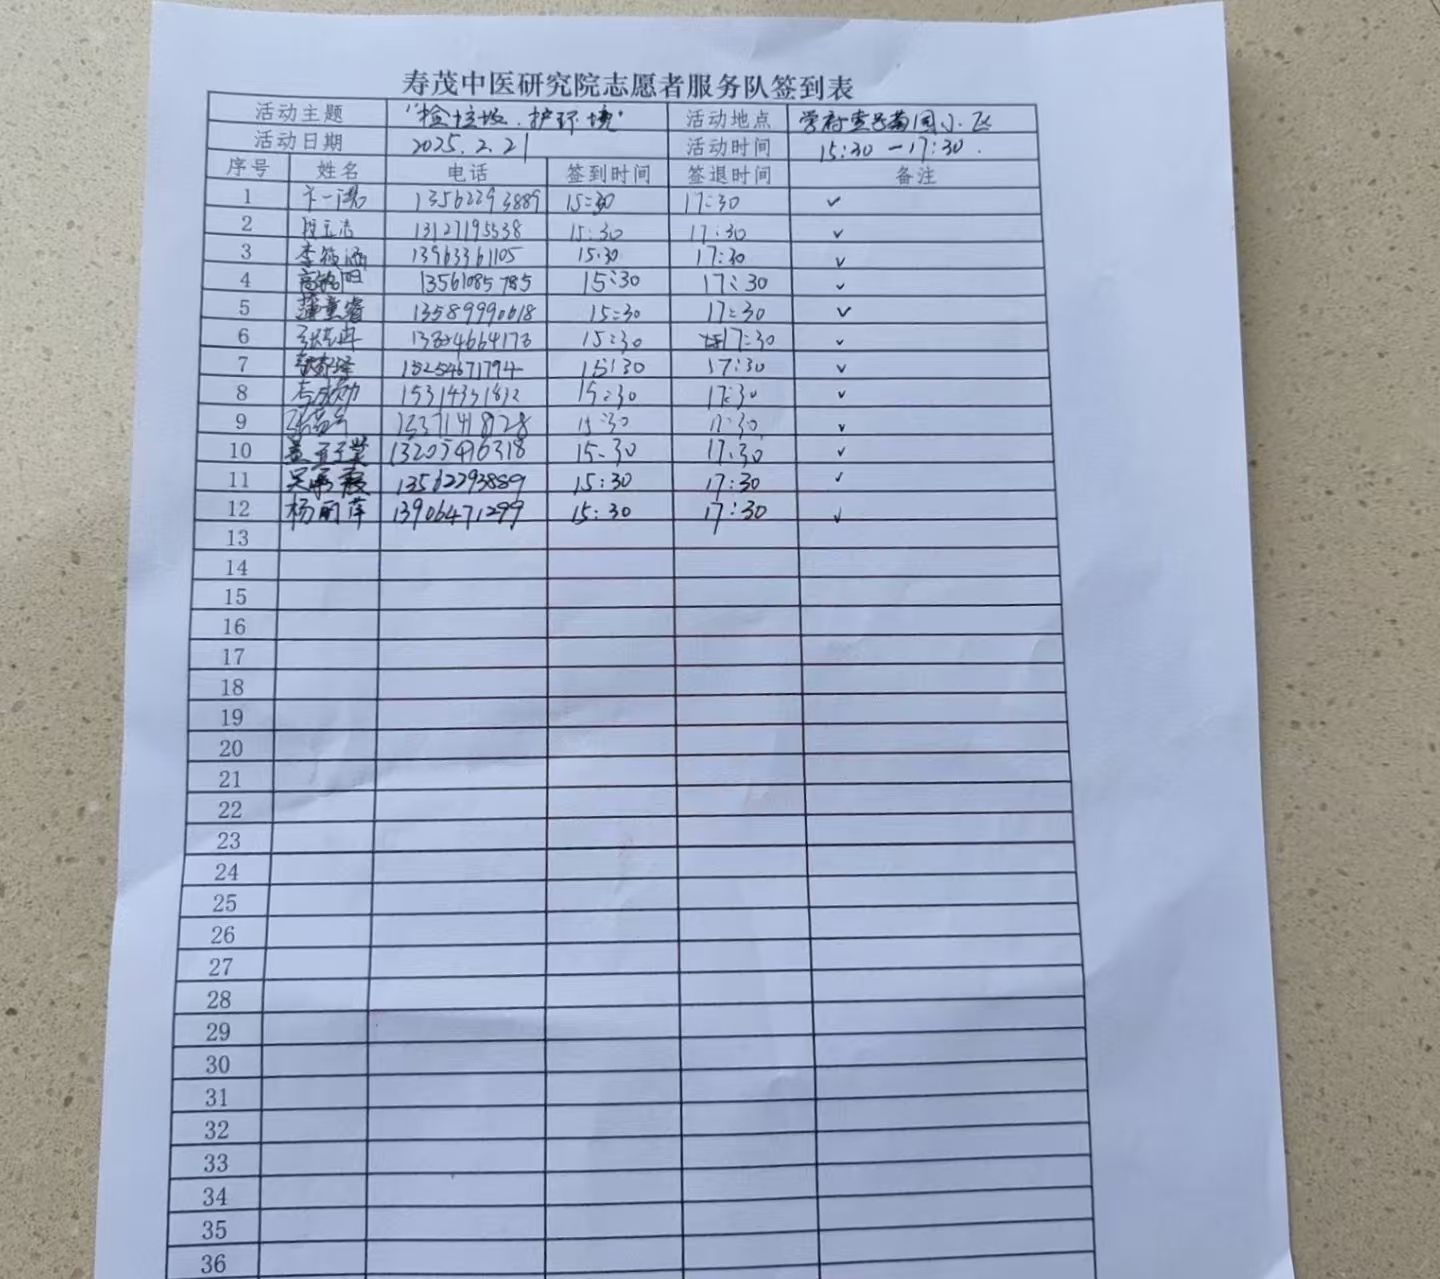 寿茂中医研究院志愿者服务队签到表
活动主题 "捡垃圾.护环境" 活动地点 学府壹号南园小区
活动日期 2025.2.21 活动时间 15:30-17:30.
序号 姓名 电话 签到时间 签退时间 备注
1 13562293889 15:30 17:30 ✓
2 13127195538 15:30 17:30 ✓
3 13963361105 15:30 17:30 ✓
4 13561085785 15:30 17:30 ✓
5 13589990618 15:30 17:30 ✓
6 15:30 17:30 ✓
7 15:30 17:30 ✓
8 15:30 17:30 ✓
9 15:30 17:30 ✓
10 13205416318 15:30 17:30 ✓
11 13562293889 15:30 17:30 ✓
12 杨丽萍 13906471299 15:30 17:30 ✓
13
14
15
16
17
18
19
20
21
22
23
24
25
26
27
28
29
30
31
32
33
34
35
36